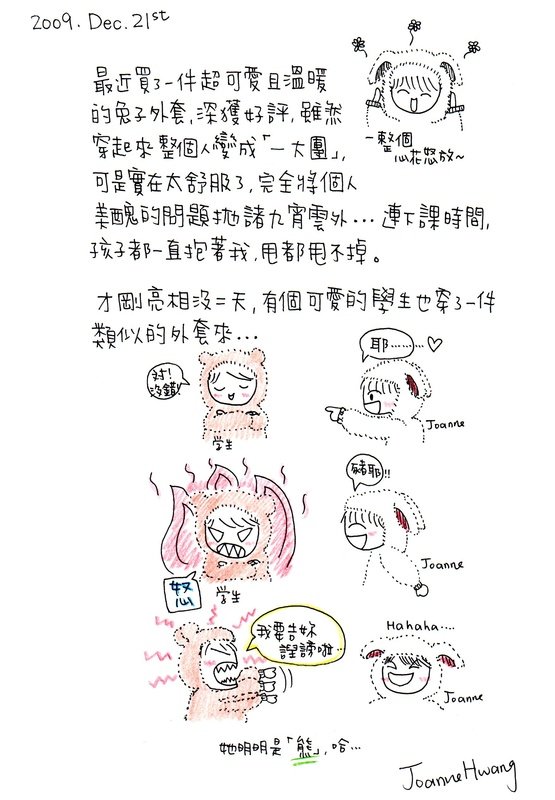 2009. Dec. 21st
最近買了一件超可愛且溫暖
的兔子外套,深獲好評,雖然
穿起來整個人變成「一大團」,
可是實在太舒服了,完全將個人
美醜的問題拋諸九宵雲外...連下課時間,
孩子都一直抱著我,甩都甩不掉。
~整個
心花怒放~
才剛亮相沒二天,有個可愛的學生也穿了一件
類似的外套來...
對!
沒錯!
学生
耶........♡
Joanne
怒
学生
豬耶!!
Joanne
我要告妳
誹謗啦..
Hahaha....
Joanne
她明明是「熊」,哈...
Joanne Hwang